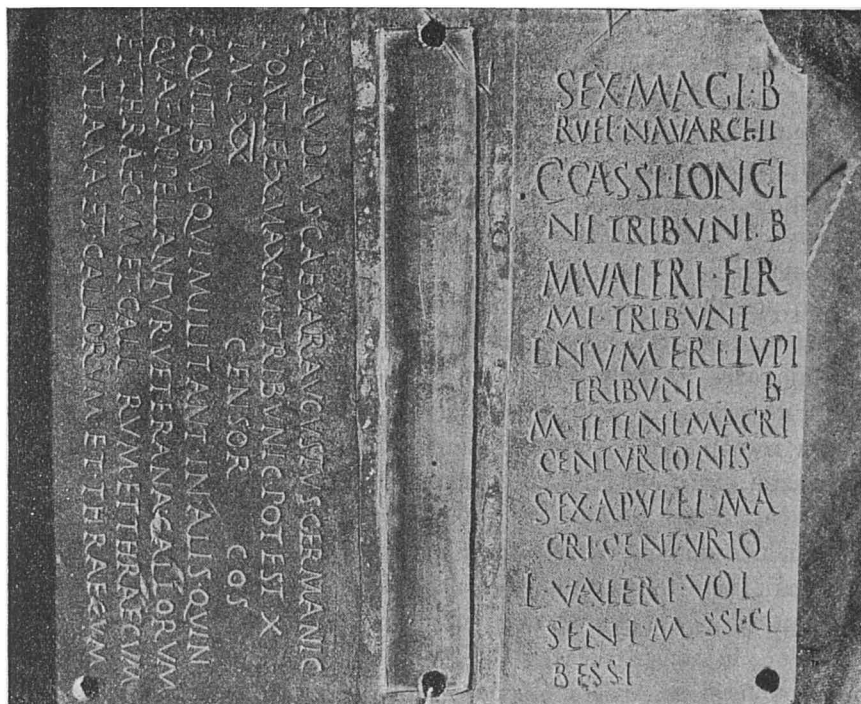 CLAVDIVS CAESAR AVGVSTVS GERMANIC
MAXIM TRIBVNIC POTEST X
CENSOR COS
EQVITIBVS QVI MILITANT IN ALIS QVIN
QVAE APPELLANTVR VETERANA GALLORVM
ET THRAECVM ET GALL RVM ET THRAECVM
NTIANA ET GALLORVM ET THRAECVM
SEX·MAGI·B
RVFI·NAVARCHI
C·CASSI·LONGI
NI TRIBVNI· B
M·VALERI·FIR
MI·TRIBVNI
L·NVMERI·LVPI
TRIBVNI B
M·TITINI·MACRI
CENTVRIONIS
SEX·APVLEI·MA
CRI·CENTVRIO
L·VALERI·VOL
SENI·M SSICI
BESSI